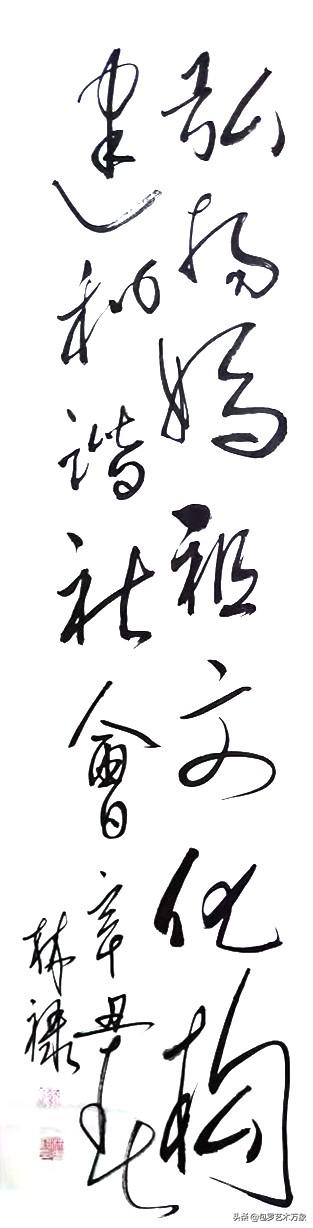 弘扬媽祖文化构
建和谐社會 辛丑春
林禄
头条@包罗艺术万象